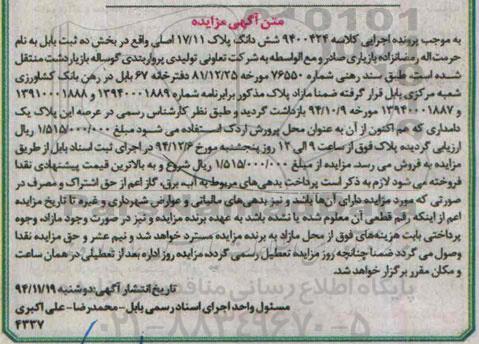 متن آگهی مزایده
به موجب پرونده اجرایی کلاسه ۹۴۰۰۴۲۴ شش دانگ پلاک ۱۷/۱۱ اصلی واقع در بخش ده ثبت بابل به نام
حرمت اله رمضانزاده بازیاری صادر و مع الواسطه به شرکت تعاونی تولیدی پرواربندی گوساله بازیار دشت منتقل
شده است، طبق سند رهنی شماره ۷۶۵۵۰ مورخه ۸۱/۱۲/۲۵ دفترخانه ۶۷ بابل در رهن بانک کشاورزی
شعبه مرکزی بابل قرار گرفته ضمنا مازاد پلاک مذکور برابر نامه شماره ۱۳۹۴۰۰۰۱۸۸۹ و ۱۳۹۱۰۰۰۱۸۸۸
و ۱۳۹۴۰۰۰۱۸۸۷ مورخه ۹۴/۱۰/۹ بازداشت گردید و طبق نظر کارشناس رسمی در عرصه این پلاک یک
دامداری که هم اکنون از آن به عنوان محل پرورش اردک استفاده می شود مبلغ ۱/۵۱۵/۰۰۰/۰۰۰ ریال
ارزیابی گردیده پلاک فوق از ساعت ۹ الی ۱۲ روز پنجشنبه مورخ ۹۴/۱۲/۶ در اجرای ثبت اسناد بابل از طریق
مزایده به فروش می رسد. مزایده از مبلغ ۱/۵۱۵/۰۰۰/۰۰۰ ریال شروع و به بالاترین قیمت پیشنهادی نقدا
فروخته می شود لازم به ذکر است پرداخت بدهی های مربوط به آب، برق، گاز اعم از حق اشتراک و مصرف در
صورتی که مورد مزایده دارای آن ها باشد و نیز بدهی های مالیاتی و عوارض شهرداری و غیره تا تاریخ مزایده
اعم از اینکه رقم قطعی آن معلوم شده یا نشده باشد به عهده برنده مزایده و نیز در صورت وجود مازاد، وجوه
پرداختی بابت هزینه های فوق از محل مازاد به برنده مزایده مسترد خواهد شد و نیم عشر و حق مزایده نقدا
وصول می گردد ضمنا چنانچه روز مزایده تعطیل رسمی گردد، مزایده روز اداره بعد از تعطیلی در همان ساعت
و مکان مقرر برگزار خواهد شد.
تاریخ انتشار آگهی: دوشنبه ۹۴/۱۱/۱۹
مسئول واحد اجرای اسناد رسمی بابل - محمدرضا - علی اکبری
۴۳۳۷
پایگاه اطلاع رسانی
۰۲۱-۸۸۳۴۹۶۷۰-۵